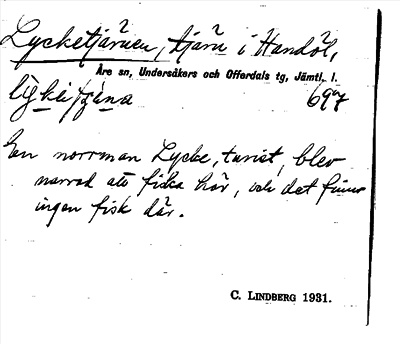 Lycketjärnen, tjärn i Handöl,
Åre sn, Undersåkers och Offerdals tg, Jämtl. l.
697
En norrman Lycke, turist, blev
narrad att fiska här, och det finns
ingen fisk där.
C. LINDBERG 1931.